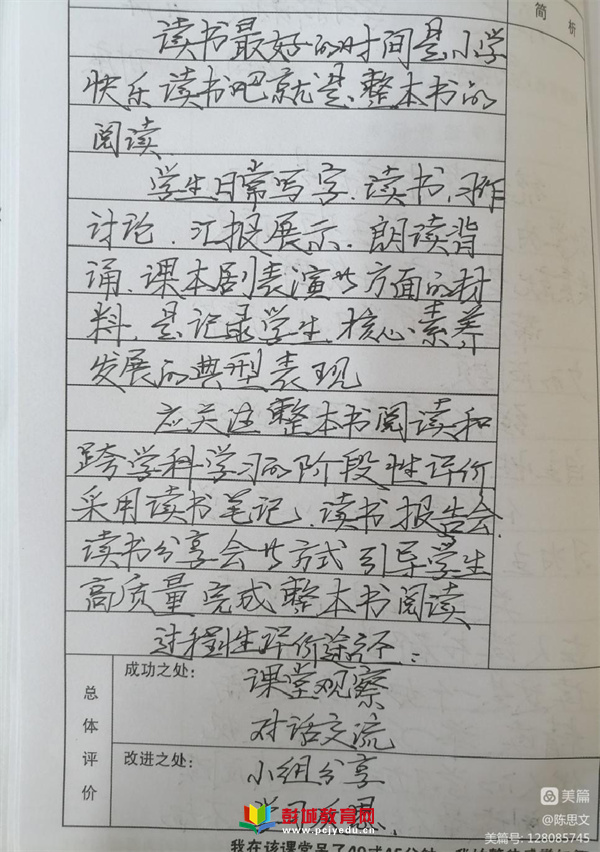 简析
读书最好的时间是小学
快乐读书吧就是整本书的
阅读
学生日常写字、读书、习作
讨论、汇报展示、朗读背
诵、课本剧表演等方面的材
料,是记录学生核心素养
发展的典型表现
应关注整本书阅读和
跨学科学习的阶段性评价
采用读书笔记、读书报告会、
读书分享会等方式引导学生
高质量完成整本书阅读
过程性评价途径:
总体评价
成功之处:
课堂观察
对话交流
改进之处:
小组分享
学习反思
彭城教育网
www.pcjyedu.cn
美篇
@陈思文
美篇号:128085745
我在该课堂呆了40或45分钟